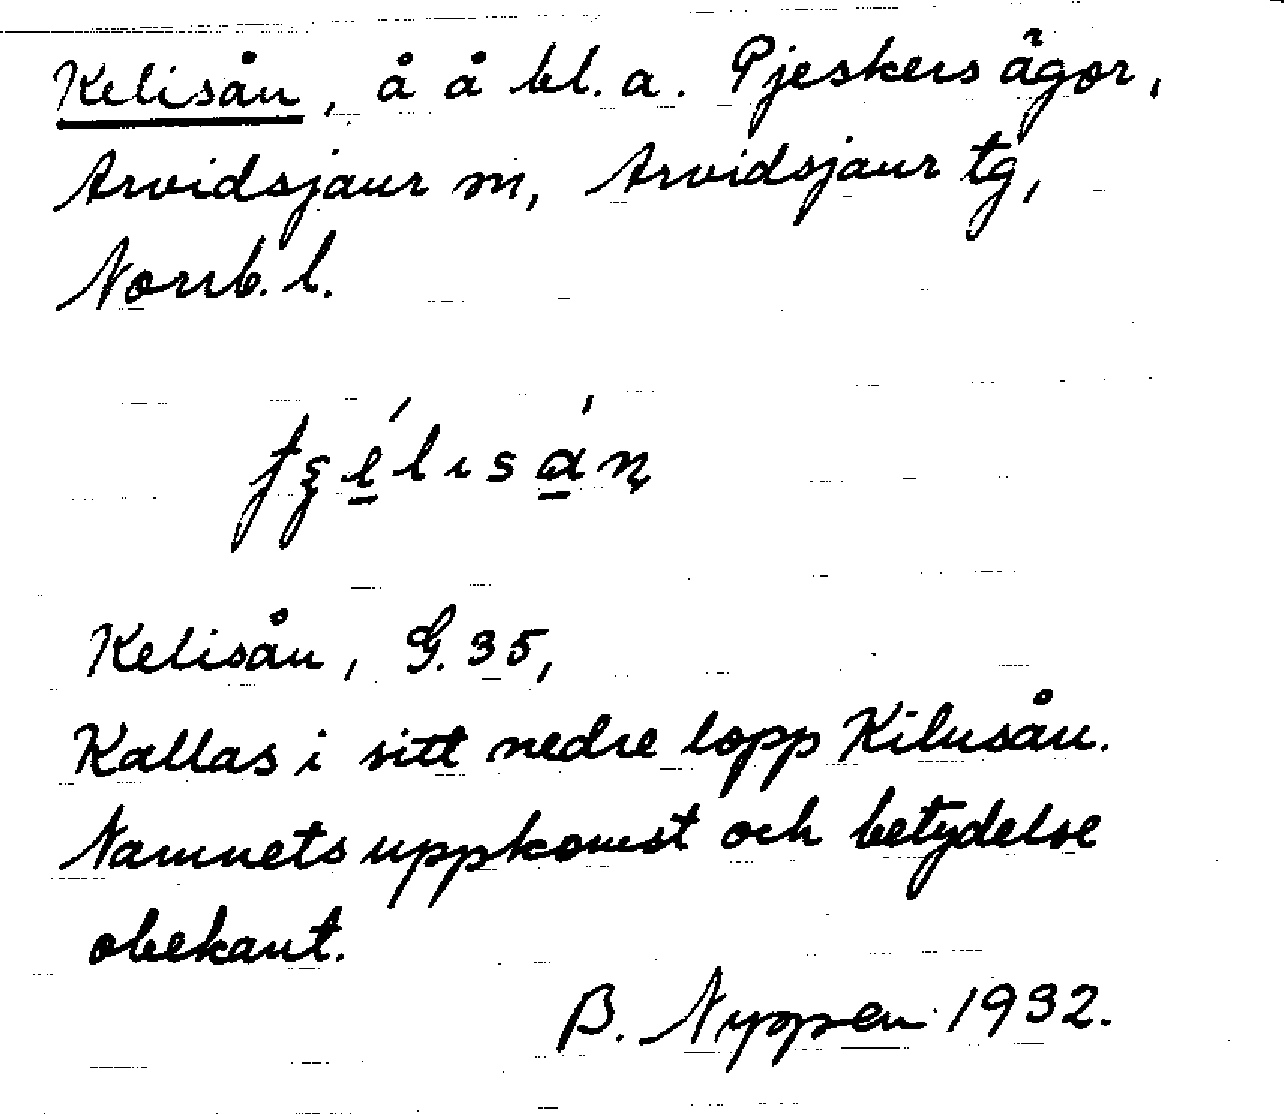 Kelisån, å å bl. a. Pjeskers ägor,
Arvidsjaur sn, Arvidsjaur tg,
Norrb. l.
Kelisån, G. 35,
Kallas i sitt nedre lopp Kilusån.
Namnets uppkomst och betydelse
obekant.
B. Nyppen 1932.